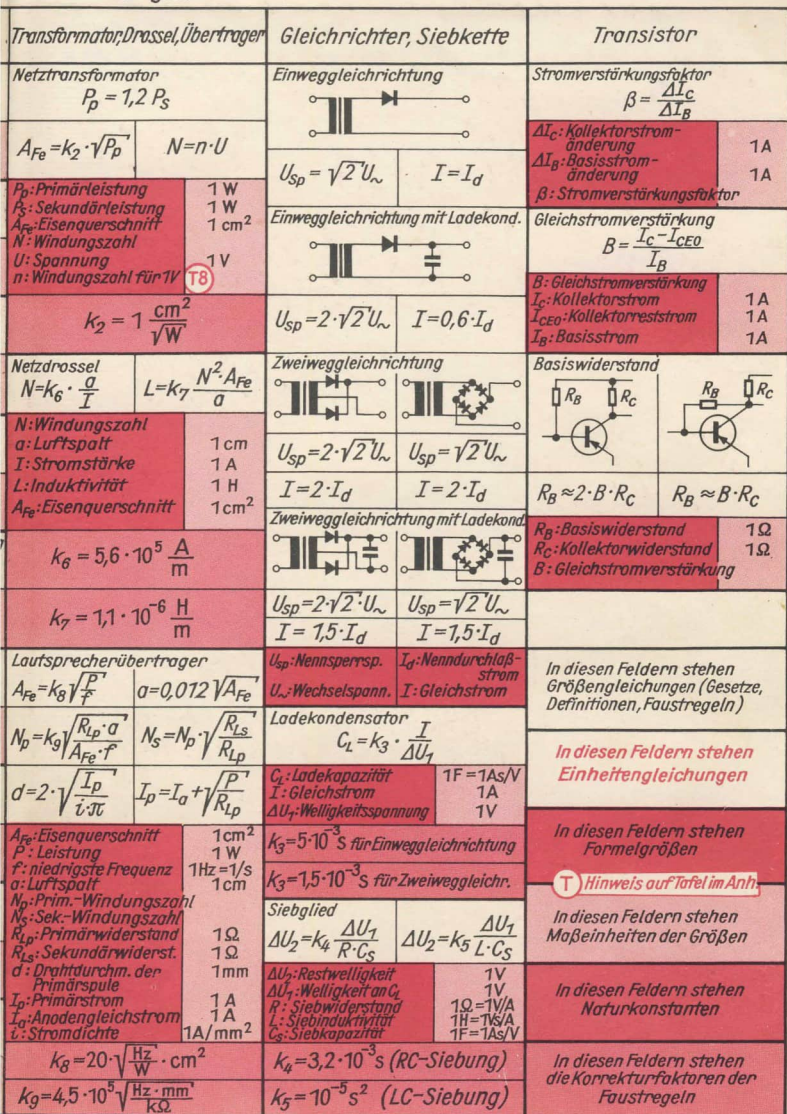 Transformator, Drossel, Übertrager
Netztransformator
P_p = 1,2 P_s
A_Fe = k_2 · √P_p
N = n · U
P_p: Primärleistung 1 W
P_s: Sekundärleistung 1 W
A_Fe: Eisenquerschnitt 1 cm²
N: Windungszahl
U: Spannung 1 V
n: Windungszahl für 1V T8
k_2 = 1 cm²/√W
Netzdrossel
N = k_6 · a/I
L = k_7 N² · A_Fe/a
N: Windungszahl
a: Luftspalt 1 cm
I: Stromstärke 1 A
L: Induktivität 1 H
A_Fe: Eisenquerschnitt 1 cm²
k_6 = 5,6 · 10⁵ A/m
k_7 = 1,1 · 10⁻⁶ H/m
Lautsprecherübertrager
A_Fe = k_8 √(P/f)
a = 0,012 √A_Fe
N_p = k_9 √(R_Lp · a/A_Fe · f)
N_s = N_p · √(R_Ls/R_Lp)
d = 2 · √(I_p/i · π)
I_p = I_a + √(P/R_Lp)
A_Fe: Eisenquerschnitt 1 cm²
P: Leistung 1 W
f: niedrigste Frequenz 1Hz = 1/s
a: Luftspalt 1 cm
N_p: Prim.-Windungszahl
N_s: Sek.-Windungszahl
R_Lp: Primärwiderstand 1 Ω
R_Ls: Sekundärwiderst. 1 Ω
d: Drahtdurchm. der 1mm
Primärspule
I_p: Primärstrom 1 A
I_a: Anodengleichstrom 1 A
i: Stromdichte 1A/mm²
k_8 = 20 · √(Hz/W) · cm²
k_9 = 4,5 · 10⁵ √(Hz · mm/kΩ)
Gleichrichter, Siebkette
Einweggleichrichtung
U_sp = √2 U~
I = I_d
Einweggleichrichtung mit Ladekond.
U_sp = 2 · √2 U~
I = 0,6 · I_d
Zweiweggleichrichtung
U_sp = 2 · √2 U~
U_sp = √2 U~
I = 2 · I_d
I = 2 · I_d
Zweiweggleichrichtung mit Ladekond.
U_sp = 2 · √2 · U~
U_sp = √2 U~
I = 1,5 · I_d
I = 1,5 · I_d
U_sp: Nennsperrsp.
U~: Wechselspann.
I_d: Nenndurchlaß-
strom
I: Gleichstrom
Ladekondensator
C_L = k_3 · I/ΔU_1
C_L: Ladekapazität 1F = 1As/V
I: Gleichstrom 1A
ΔU_1: Welligkeitsspannung 1V
k_3 = 5 · 10⁻³ s für Einweggleichrichtung
k_3 = 1,5 · 10⁻³ s für Zweiweggleichr.
Siebglied
ΔU_2 = k_4 ΔU_1/R · C_S
ΔU_2 = k_5 ΔU_1/L · C_S
ΔU_2: Restwelligkeit 1V
ΔU_1: Welligkeit an C_L 1V
R: Siebwiderstand 1Ω = 1V/A
L: Siebinduktivität 1H = 1Vs/A
C_S: Siebkapazität 1F = 1As/V
k_4 = 3,2 · 10⁻³ s (RC-Siebung)
k_5 = 10⁻⁵ s² (LC-Siebung)
Transistor
Stromverstärkungsfaktor
β = ΔI_C/ΔI_B
ΔI_C: Kollektorstrom-
änderung 1A
ΔI_B: Basisstrom-
änderung 1A
β: Stromverstärkungsfaktor
Gleichstromverstärkung
B = I_C − I_CEO/I_B
B: Gleichstromverstärkung
I_C: Kollektorstrom 1A
I_CEO: Kollektorreststrom 1A
I_B: Basisstrom 1A
Basiswiderstand
R_B R_C
R_B R_C
R_B ≈ 2 · B · R_C
R_B ≈ B · R_C
R_B: Basiswiderstand 1Ω
R_C: Kollektorwiderstand 1Ω
B: Gleichstromverstärkung
In diesen Feldern stehen
Größengleichungen (Gesetze,
Definitionen, Faustregeln)
In diesen Feldern stehen
Einheitengleichungen
In diesen Feldern stehen
Formelgrößen
T Hinweis auf Tafel im Anh.
In diesen Feldern stehen
Maßeinheiten der Größen
In diesen Feldern stehen
Naturkonstanten
In diesen Feldern stehen
die Korrekturfaktoren der
Faustregeln